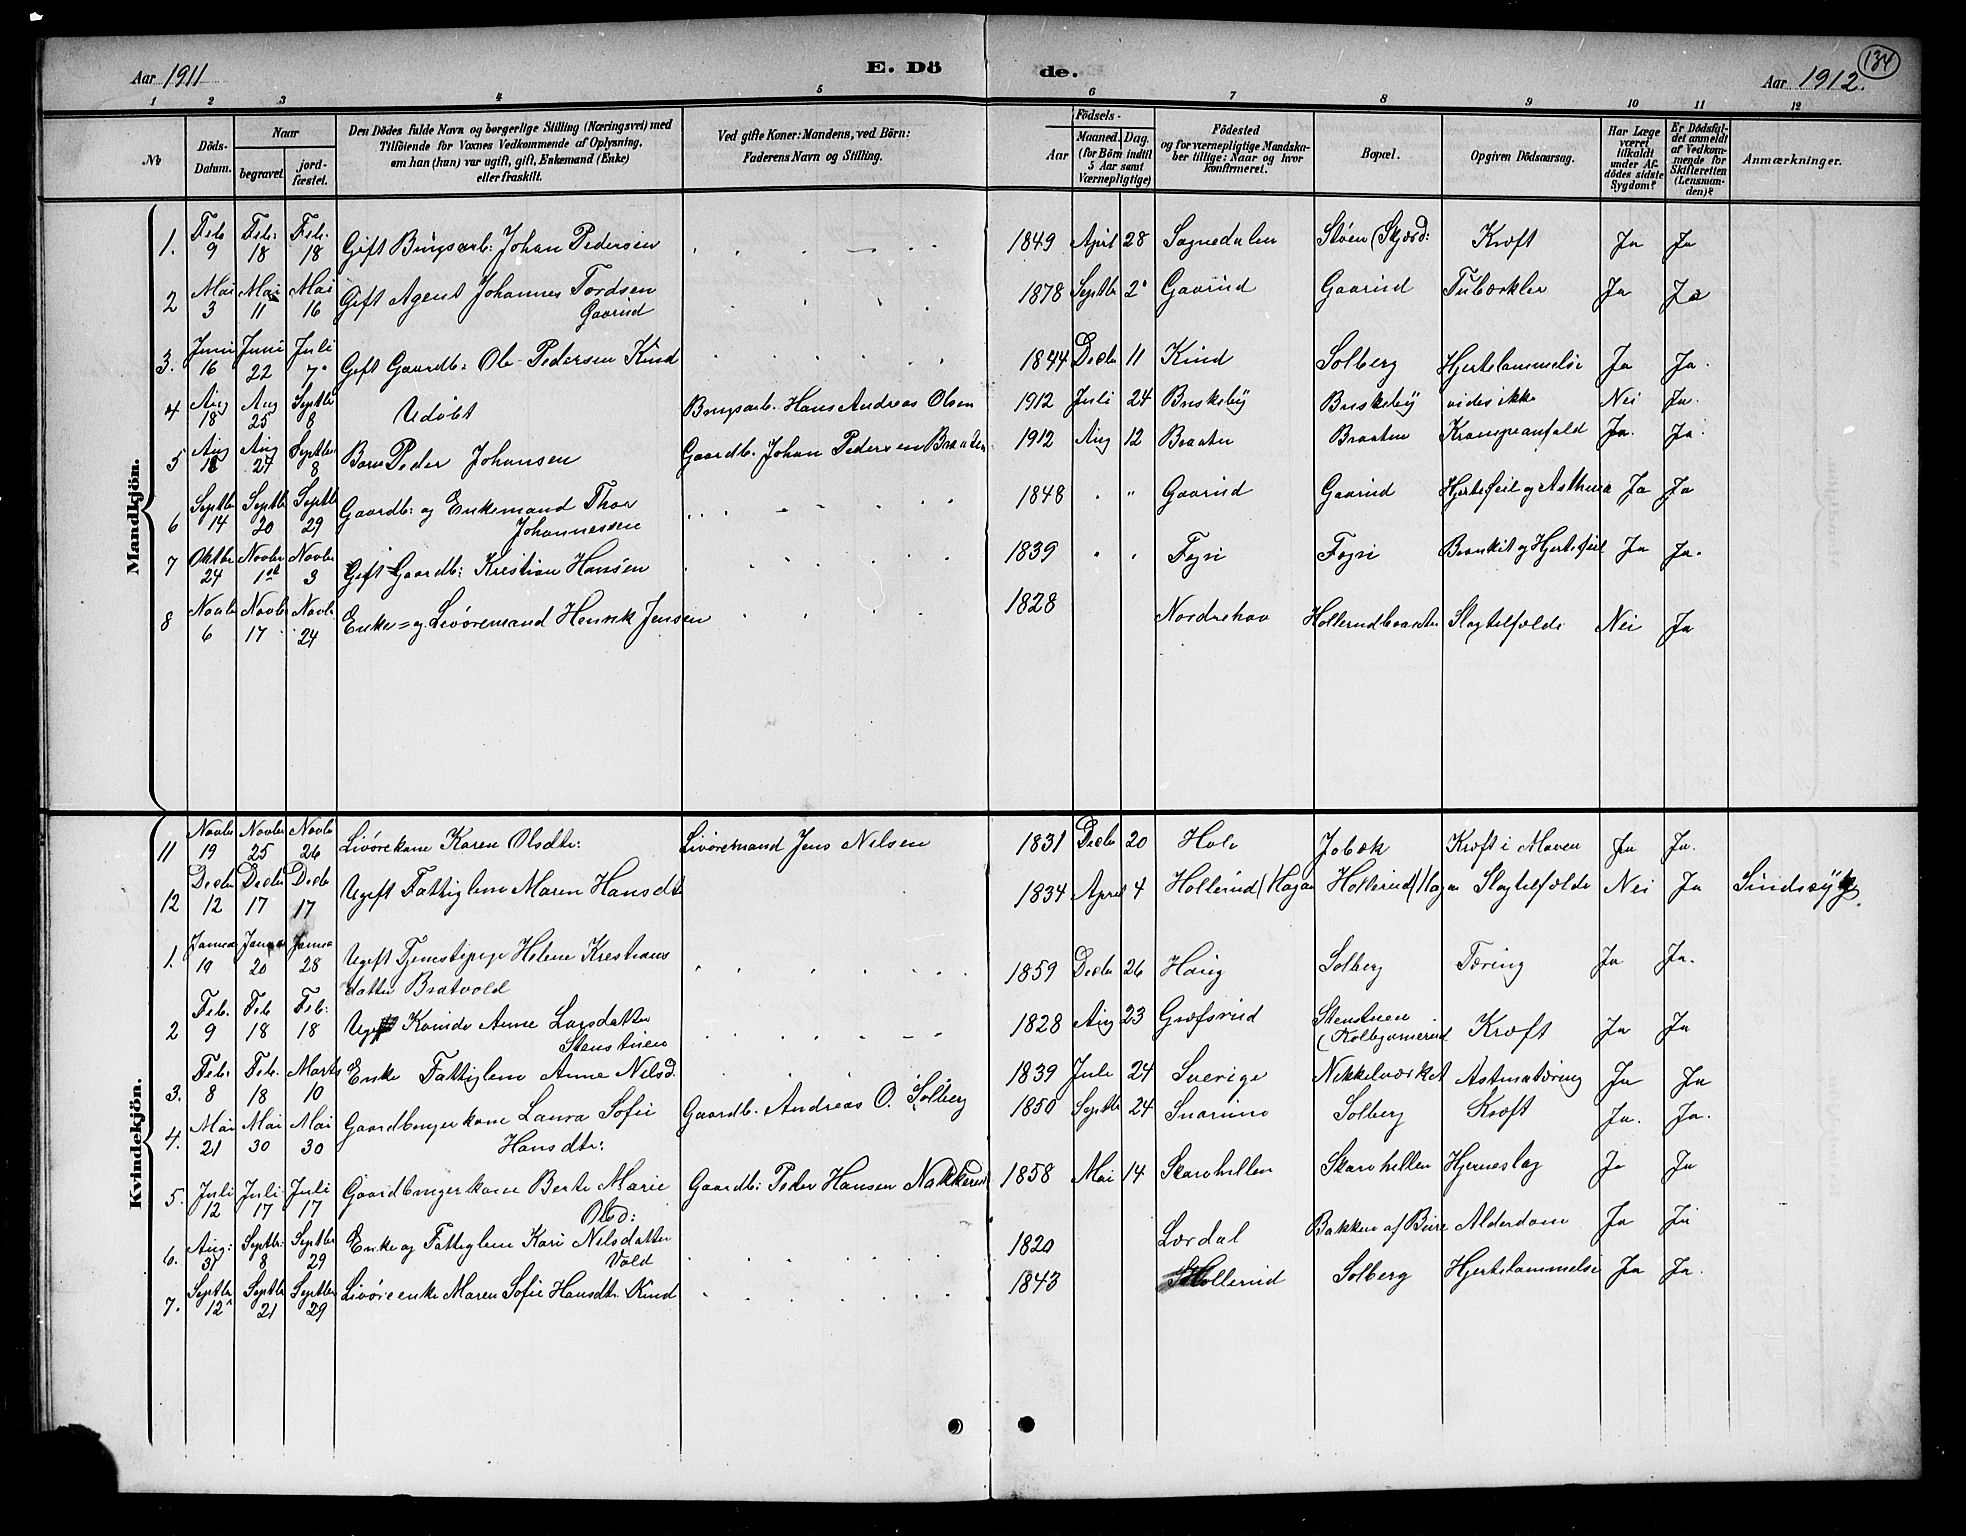 Aar 1911
E. Dö
de.
Aar 1912.
134
1 2 3 4 5 6 7 8 9 10 11 12
No
Döds-Datum.
Naar
begravet.
jord-fæstet.
Den Dödes fulde Navn og borgerlige Stilling (Næringsvei) med
Tilföiende for Voxnes Vedkommende af Oplysning,
om han (hun) var ugift, gift, Enkemand (Enke)
eller fraskilt.
Ved gifte Koner: Mandens, ved Börn:
Faderens Navn og Stilling.
Födsels-
Aar
Maaned. Dag.
(for Börn indtil
5 Aar samt
Værnepligtige)
Födested
og for værnepligtige Mandska-
ber tillige: Naar og hvor
konfirmeret.
Bopæl.
Opgiven Dödsaarsag.
Har Læge
været
tilkaldt
under Af-
dödes sidste
Sygdom?
Er Dödsfal-
det anmeldt
af Vedkom-
mende for
Skifteretten
(Lensman-
den)?
Anmærkninger.
Mandkjön.
1. Feb 9 Feb: 18 Feb. 18 Gift Brugsarb: Johan Pedersen 1849 April 28 Sognedalen Støen (Skjærd: Kræft Ja Ja
2 Mai 3 Mai 11 Mai 16 Gift Agent Johannes Tordsen Gaarud 1878 Septbr 2 Gaarud Gaarud Tuberkler Ja Ja
3. Juni 16 Juni 22 Juli 7 Gift Gaardb: Ole Pedersen Kind 1844 Decbr 11 Kind Solberg Hjertelammelse Ja Ja.
4 Aug 18 Aug 25 Septbr 8 Udöbt Brugsarb. Hans Andreas Olsen 1912 Juli 24 Buskeby Buskeby vides ikke Nei Ja.
5 Aug Aug 24 Septbr 8 Barn Peder Johansen Gaardb. Johan Pedersen Braaten 1912 Aug 12 Braaten Braaten Krampeanfald Ja. Ja.
6 Septbr 14 Septbr 20 Septbr 29 Gaardb: og Enkemand Thor Johannessen 1848 " Gaarud Gaarud Hjertefeil og Asthma Ja Ja
7 Oktbr 24 Novbr 1st Novbr 3 Gift Gaardb: Kristian Hansen 1839 " Fegri Fegri Bronkit og Hjertefeil Ja Ja.
8 Novbr 6 Novbr 17 Novbr 24 Enke= og Livöremand Henrik Jensen 1828 Nordrehov Hollerudbraaten Slagtilfælde Nei Ja
Kvindekjön.
11 Novbr 19 Novbr 25 Novbr 26 Livörekone Karen Olsdtr: Livöremand Jens Nilsen 1831 Decbr 20 Hole Jobæk Kræft i Maven Ja Ja.
12 Decbr 12 Decbr 17 Decbr 17 Ugift Fattiglem Maren Hansdtr 1834 April 4 Hollerud (Hagen Hollerud (Hagen Slagtilfælde Nei Ja Sindssyg.
1. Januar 19 Januar 20 Januar 28 Ugift Tjenestepige Helene Kristians
datter Bratvold 1859 Decbr 26 Haug Solberg Tæring Ja Ja.
2 Feb. 9 Feb 18 Feb: 18 Ugift Kvinde Anne Larsdatter
Stenstuen 1828 Aug 23 Græfsrud Stenstuen Kræft Ja Ja
3. Feb: 8 Feb. 18 Marts 10 Enke Fattiglem Anne Nilsd. 1839 Juli 24 Sverige Nikkelværket Astmatæring Ja Ja
4. Mai 21 Mai 30 Mai 30 Gaardbrugerkone Laura Sofie
Hansdtr: Gaardb. Andreas O. Solberg 1850 Septbr 24 Snarum Solberg Kræft Ja. Ja.
5. Juli 12 Juli 17 Juli 17 Gaardbrugerkone Berte Marie
Olsd: Gaardb: Peder Hansen Nakkerud 1858 Mai 14 Skarehellen Skarehellen Hjerneslag Ja Ja
6. Aug: 31 Septbr: 8 Septbr 29 Enke og Fattiglem Kari Nilsdatter
Vold 1820 Lærdal Bakken af Bure Alderdom Ja Ja
7. Septbr 12 Septbr 21 Septbr 29 Livöreenke Maren Sofie Hansdtr. Kind 1843 Hollerud Solberg Hjertelammelse Ja Ja.